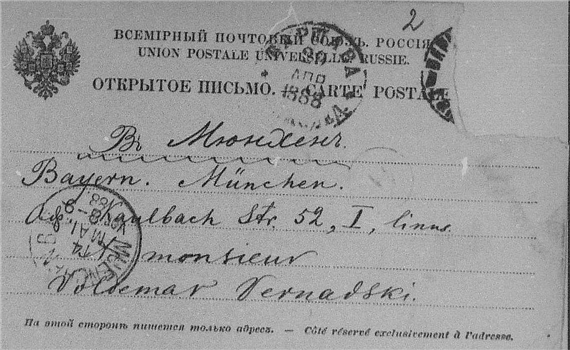 2
ВСЕМІРНЫЙ ПОЧТОВЫЙ СОЮЗЪ. РОССІЯ
UNION POSTALE UNIVERSELLE. RUSSIE.
ОТКРЫТОЕ ПИСЬМО. — CARTE POSTALE
30
АПР
1888
Въ Мюнхенъ.
Bayern. München.
Kaulbach Str. 52, I, links.
monsieur
Voldemar Vernadski.
MAI
88
На этой сторонѣ пишется только адресъ. — Côté réservé exclusivement à l'adresse.